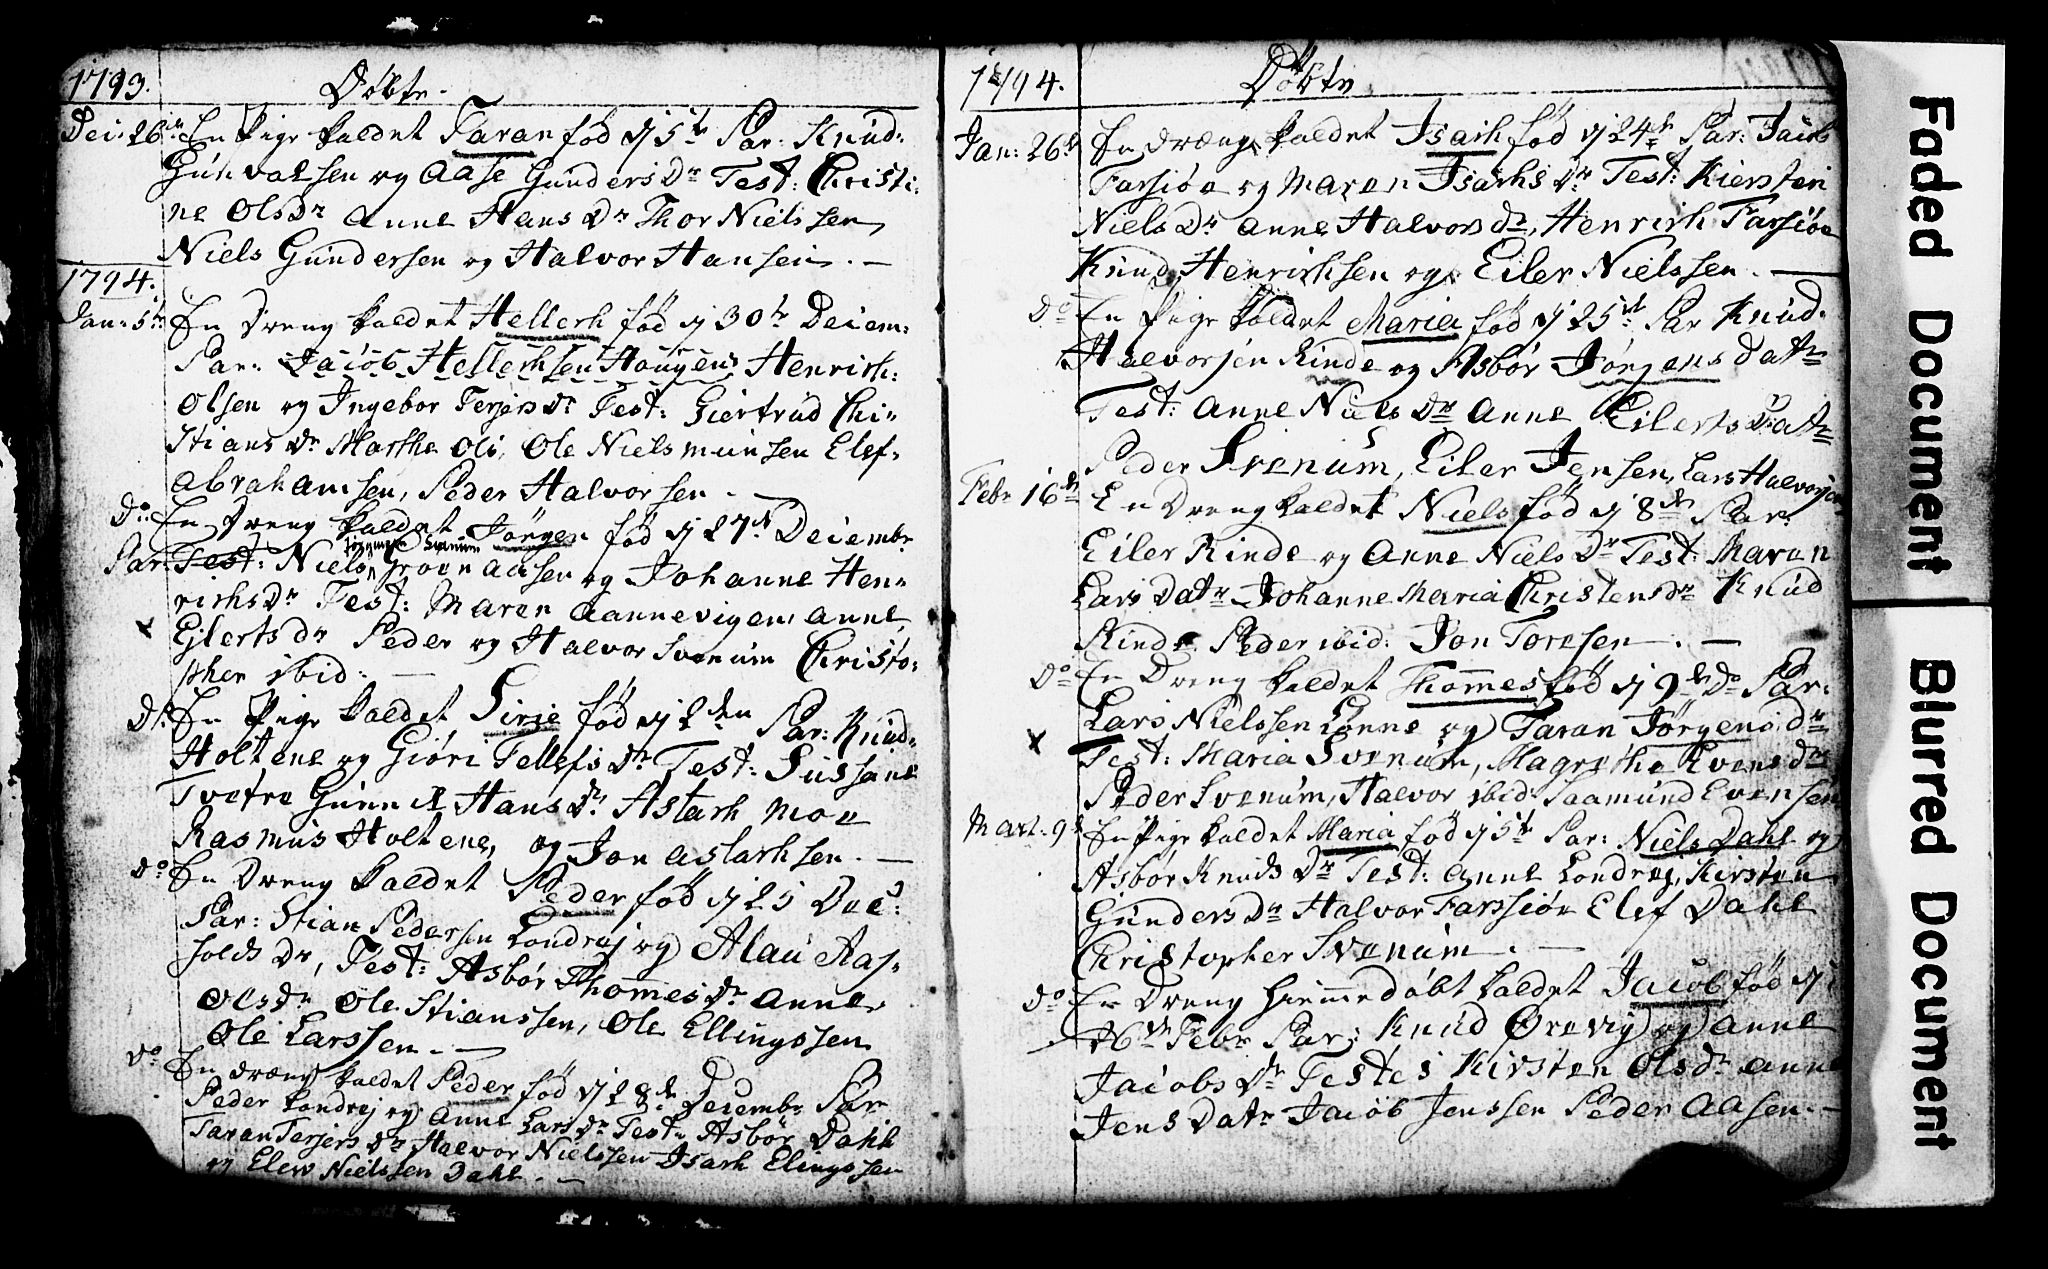 1793.
Døbte.
Dec: 26de En Pige kaldet Taran fød d 5te Par: Knud
Gunvalsen og Aase Gunders Dr Test: Christi:
ne Ols Dr Anne Hans Dr Thor Nielssen
Niels Gundersen og Halvor Hansen. —
1794.
Jan: 5te En Dreng kaldet Hellech fød d 30te Decem:
Par: Jacob Hellechsen Haugens Henrich:
Olsen og Ingebor Terjers Dr Test: Giertrud Chi=
stians Dr Marthe Ols, Ole Nielsmunsen Elef=
Abrahamsen, Peder Halvorsen. —
Do. En Dreng kaldet Jørgen fød d 27de Decembr
Jørgensen Svenum
Par: Test: Niels Groen Aasen og Johanne Hen=
richs Dr Test: Maren Aannevigen, Anne
Eilerts Dr Peder og Halvor Svenum Christo:
pher ibid: —
Do. En Pige kaldet Sirie fød d 2den Par: Knud
Holtene og Giøri Tellefs Dr Test: Sussane
Tvetre Gunnil Hans Dr Astach Moe
Rasmus Holtene, og Jon Astachsen. —
do En Dreng kaldet Peder fød d 25 Dec:
Par: Stian Pedersen Londrej og Alau Aas=
solds Dr, Test: Asbør Thomes Dr Anne
Olsdr Ole Stianssen, Ole Ellingssen
Ole Larssen. —
do En dræng kaldet Peder fød d 28de Decembr Par
Peder Londrej og Anne Lars Dr Test: Asbør Dahl
Taran Terjers Dr Halvor Nielssen Isach Elingssen
og Elew Nielssen Dahl. —
1794.
Døbte
Jan: 26de En dræng kaldet Isach fød d 24de Par: Jacob
Farsiøe og Maren Isachs Dr Test: Kiersten
Niels Dr Anne Halvors dr, Henrich Farsiøe
Knud Henrichsen og Eiler Nielssen. —
Do En Pige kaldet Maria fød d 25de Par Knud
Halvorsen Rinde og Asbør Jørgens Datr
Test: Anne Niels Dr Anne Eilerts Datr
Peder Svenum, Eiler Jensen, Lars Halvorsen
Febr 16de En Dreng kaldet Niels fød d 8de Par:
Eiler Rinde og Anne Niels Dr Test: Maren
Lars Datr Johanne Maria Christensdr Knud
Rinde Peder ibid: Jon Toresen. —
Do En Dreng kaldet Thommes fød d 9de do Par:
Lars Nielssen Lønne og Taran Jørgens dr
Test: Maria Svenum, Magrethe Evens dr
Peder Svenum, Halvor ibid: Saamund Evensen
Mart: 9de En Pige kaldet Maria fød d 5te Par: Niels Dahl og
Asbør Knuds Dr Test: Anne Londrej, Kirsten
Gunders Dr Halvor Farssiøe Elef Dahl
Christopher Svenum. —
do En Dreng hiemmedøbt kaldet Jacob fød d
26de Febr Par: Knud Ørevig og Anne
Jacobs Dr Testes Kirsten Olsdr Anne
Jens Datr Jacob Jenssen Peder Aasen. —
Faded Document
Blurred Document